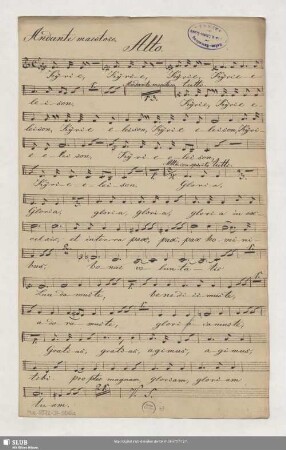 Andante maestoso. Alto.
Kyrie, Kyrie, Kyrie, Kyrie e
le i son, tutti Kyrie, Kyrie e
leison, Kyrie e leison, Kyrie e leison, Kyri
e e lei son, Kyrie e lei son,
tutti
Kyrie e lei son, Gloria,
Gloria, glori a, glori a, glori a in ex
celsis, et in terra pax, pax, pax ho mi ni
bus, bo nae vo lun ta tis
lau da mus te, be ne di ci mus te,
a do ra mus te, glori fi ca mus te,
Grati as, grati as, agimus, a gi mus,
tibi propter magnam, gloriam, glori am
tu am. V. S.
SLUB